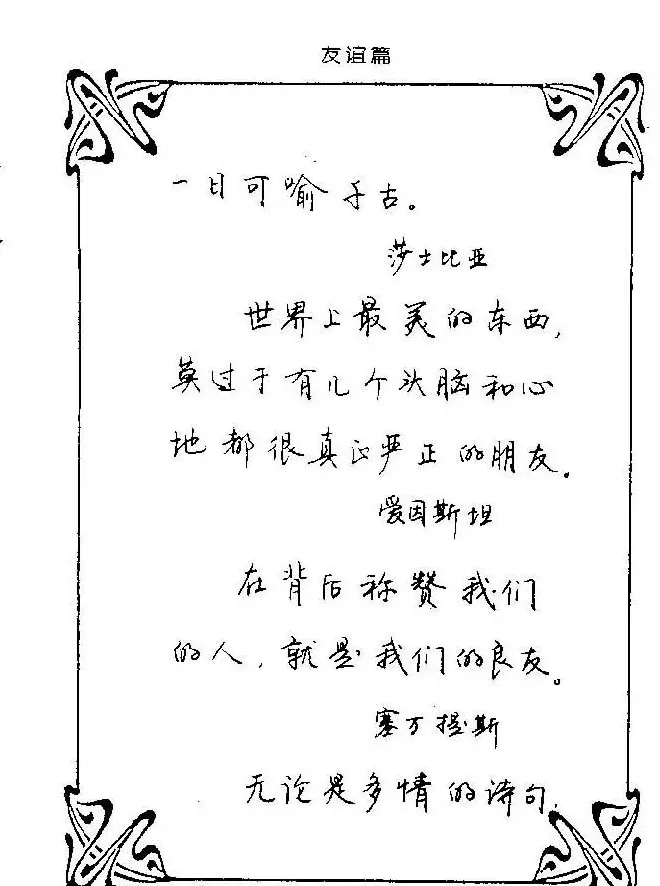 友谊篇
一日可喻千古。
莎士比亚
世界上最美的东西,
莫过于有几个头脑和心
地都很真正严正的朋友。
爱因斯坦
在背后称赞我们
的人,就是我们的良友。
塞万提斯
无论是多情的诗句,